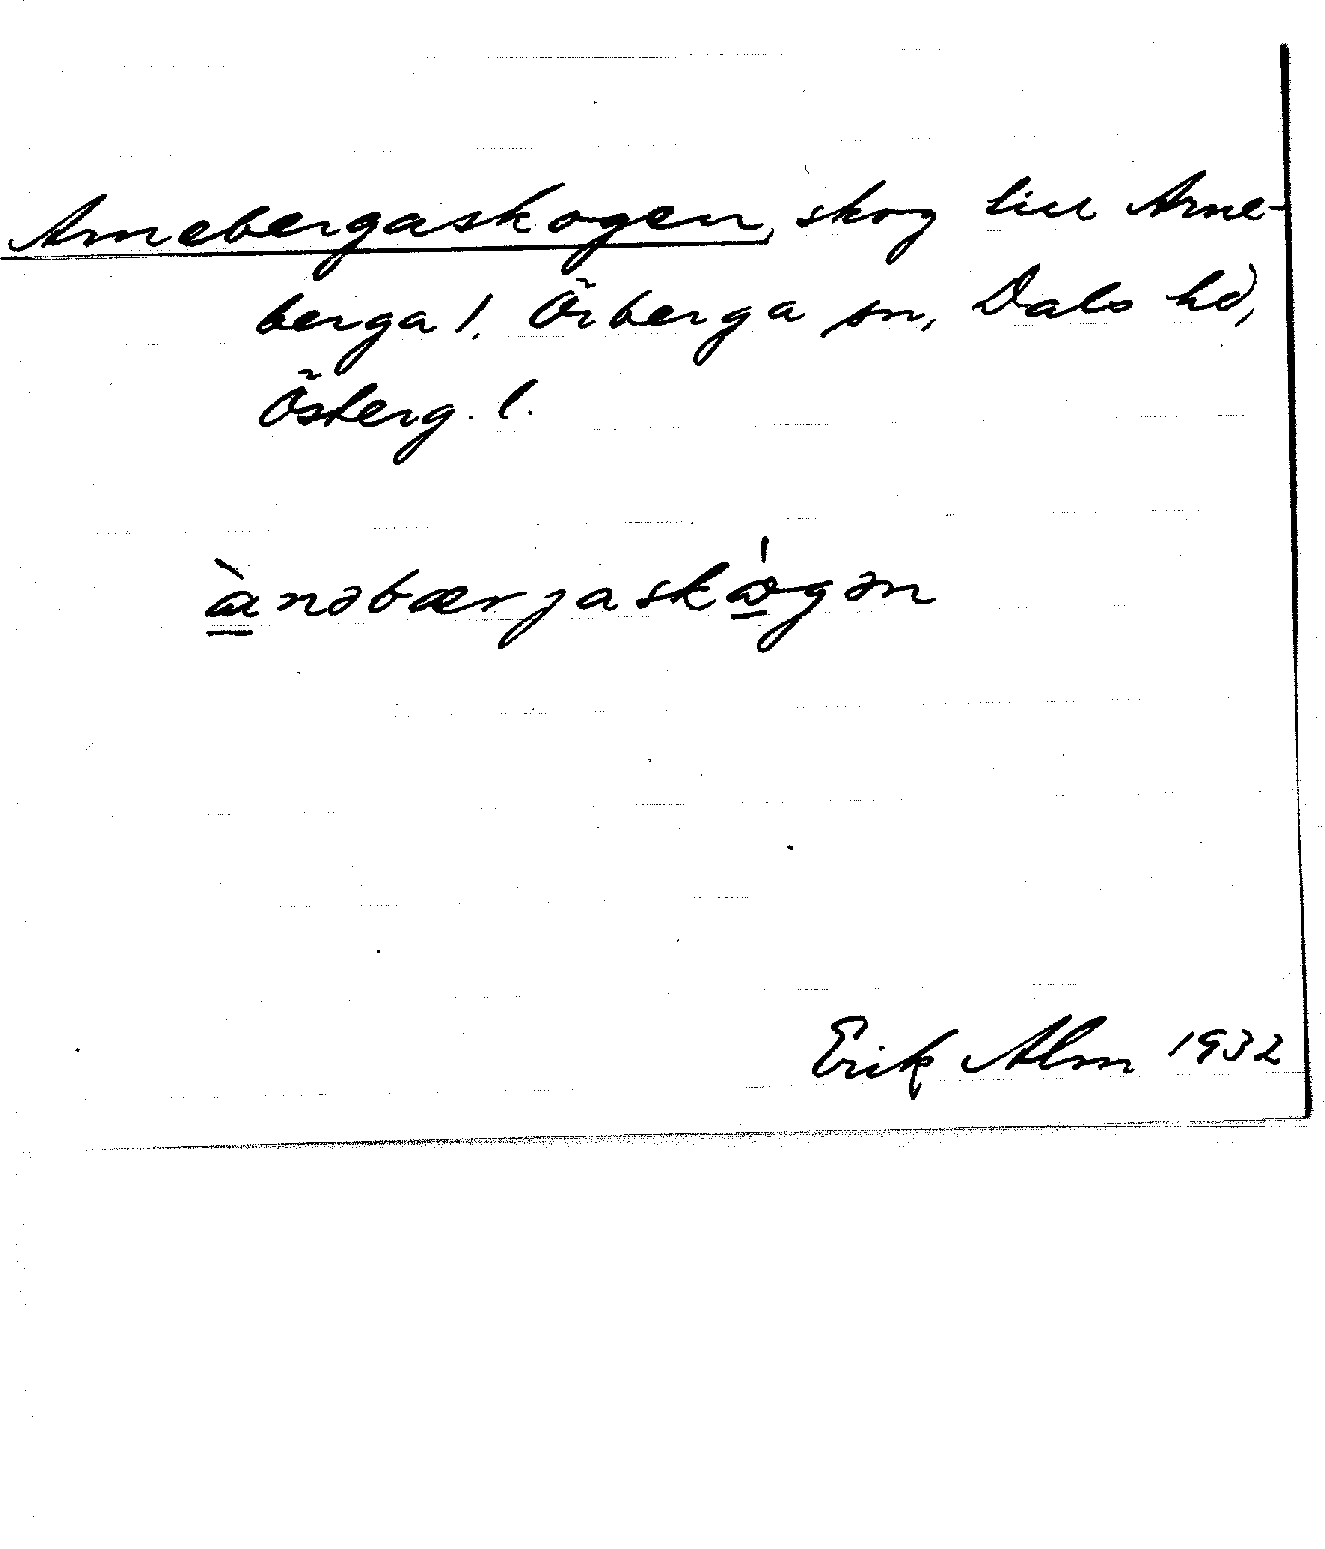 Arnebergaskogen, skog till Arne-
berga 1, Örberga sn, Dals hd,
Österg. l.
ɑ̱̀nəbærjaskɷ̱́gən
Erik Alm 1932